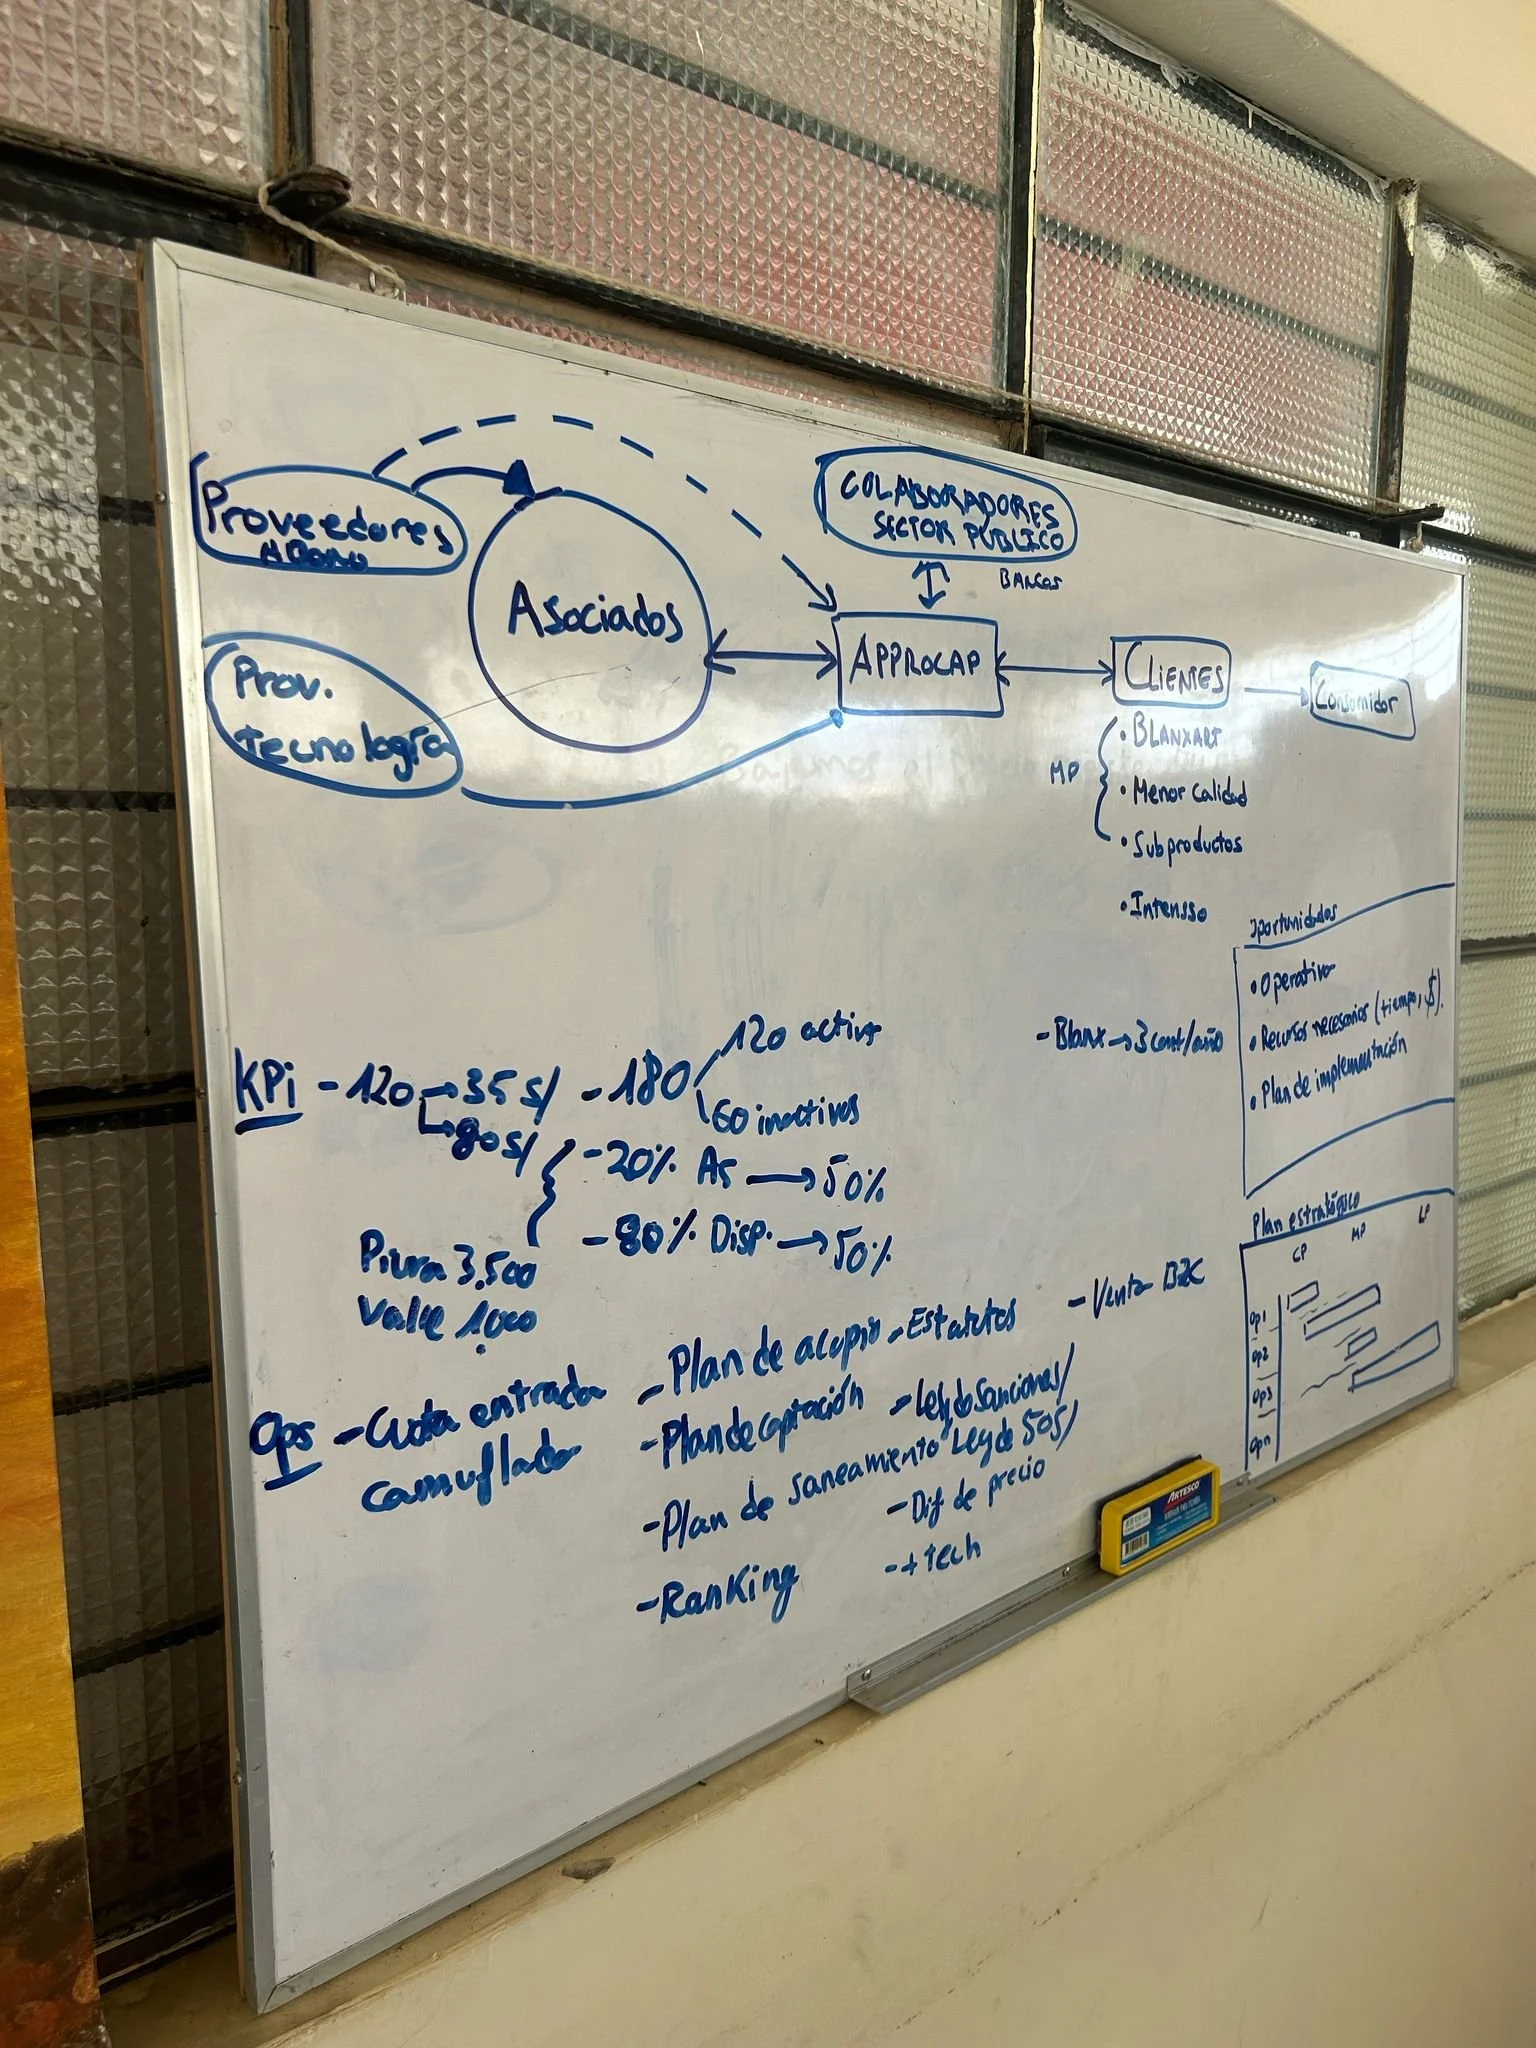 Proveedores
ABONO
Asociados
COLABORADORES
SECTOR PUBLICO
BANCOS
Prov.
tecnología
APPROCAP
CLIENTES
Consumidor
MP
• BLANXART
• Menor calidad
• Subproductos
• Intensso
Oportunidades
• Operativa
• Recursos necesarios (tiempo, $).
• Plan de implementación
KPi
- 120 → 35 s/
80 s/
- 180
120 activos
60 inactivos
- 20% As → 50%
- 80% Disp. → 50%
Piura 3.500
Valle 1.000
- Blanx → 3 cont/año
- Venta B2C
Plan estratégico
CP MP LP
Op1
Op2
Op3
Opn
Ops
- Cuota entrada
camuflada
- Plan de acopio
- Plan de captación
- Plan de saneamiento
- Ranking
- Estatutos
- Ley de Sanciones/
Ley de 50s/
- Dif de precio
- + tech
ARTESCO